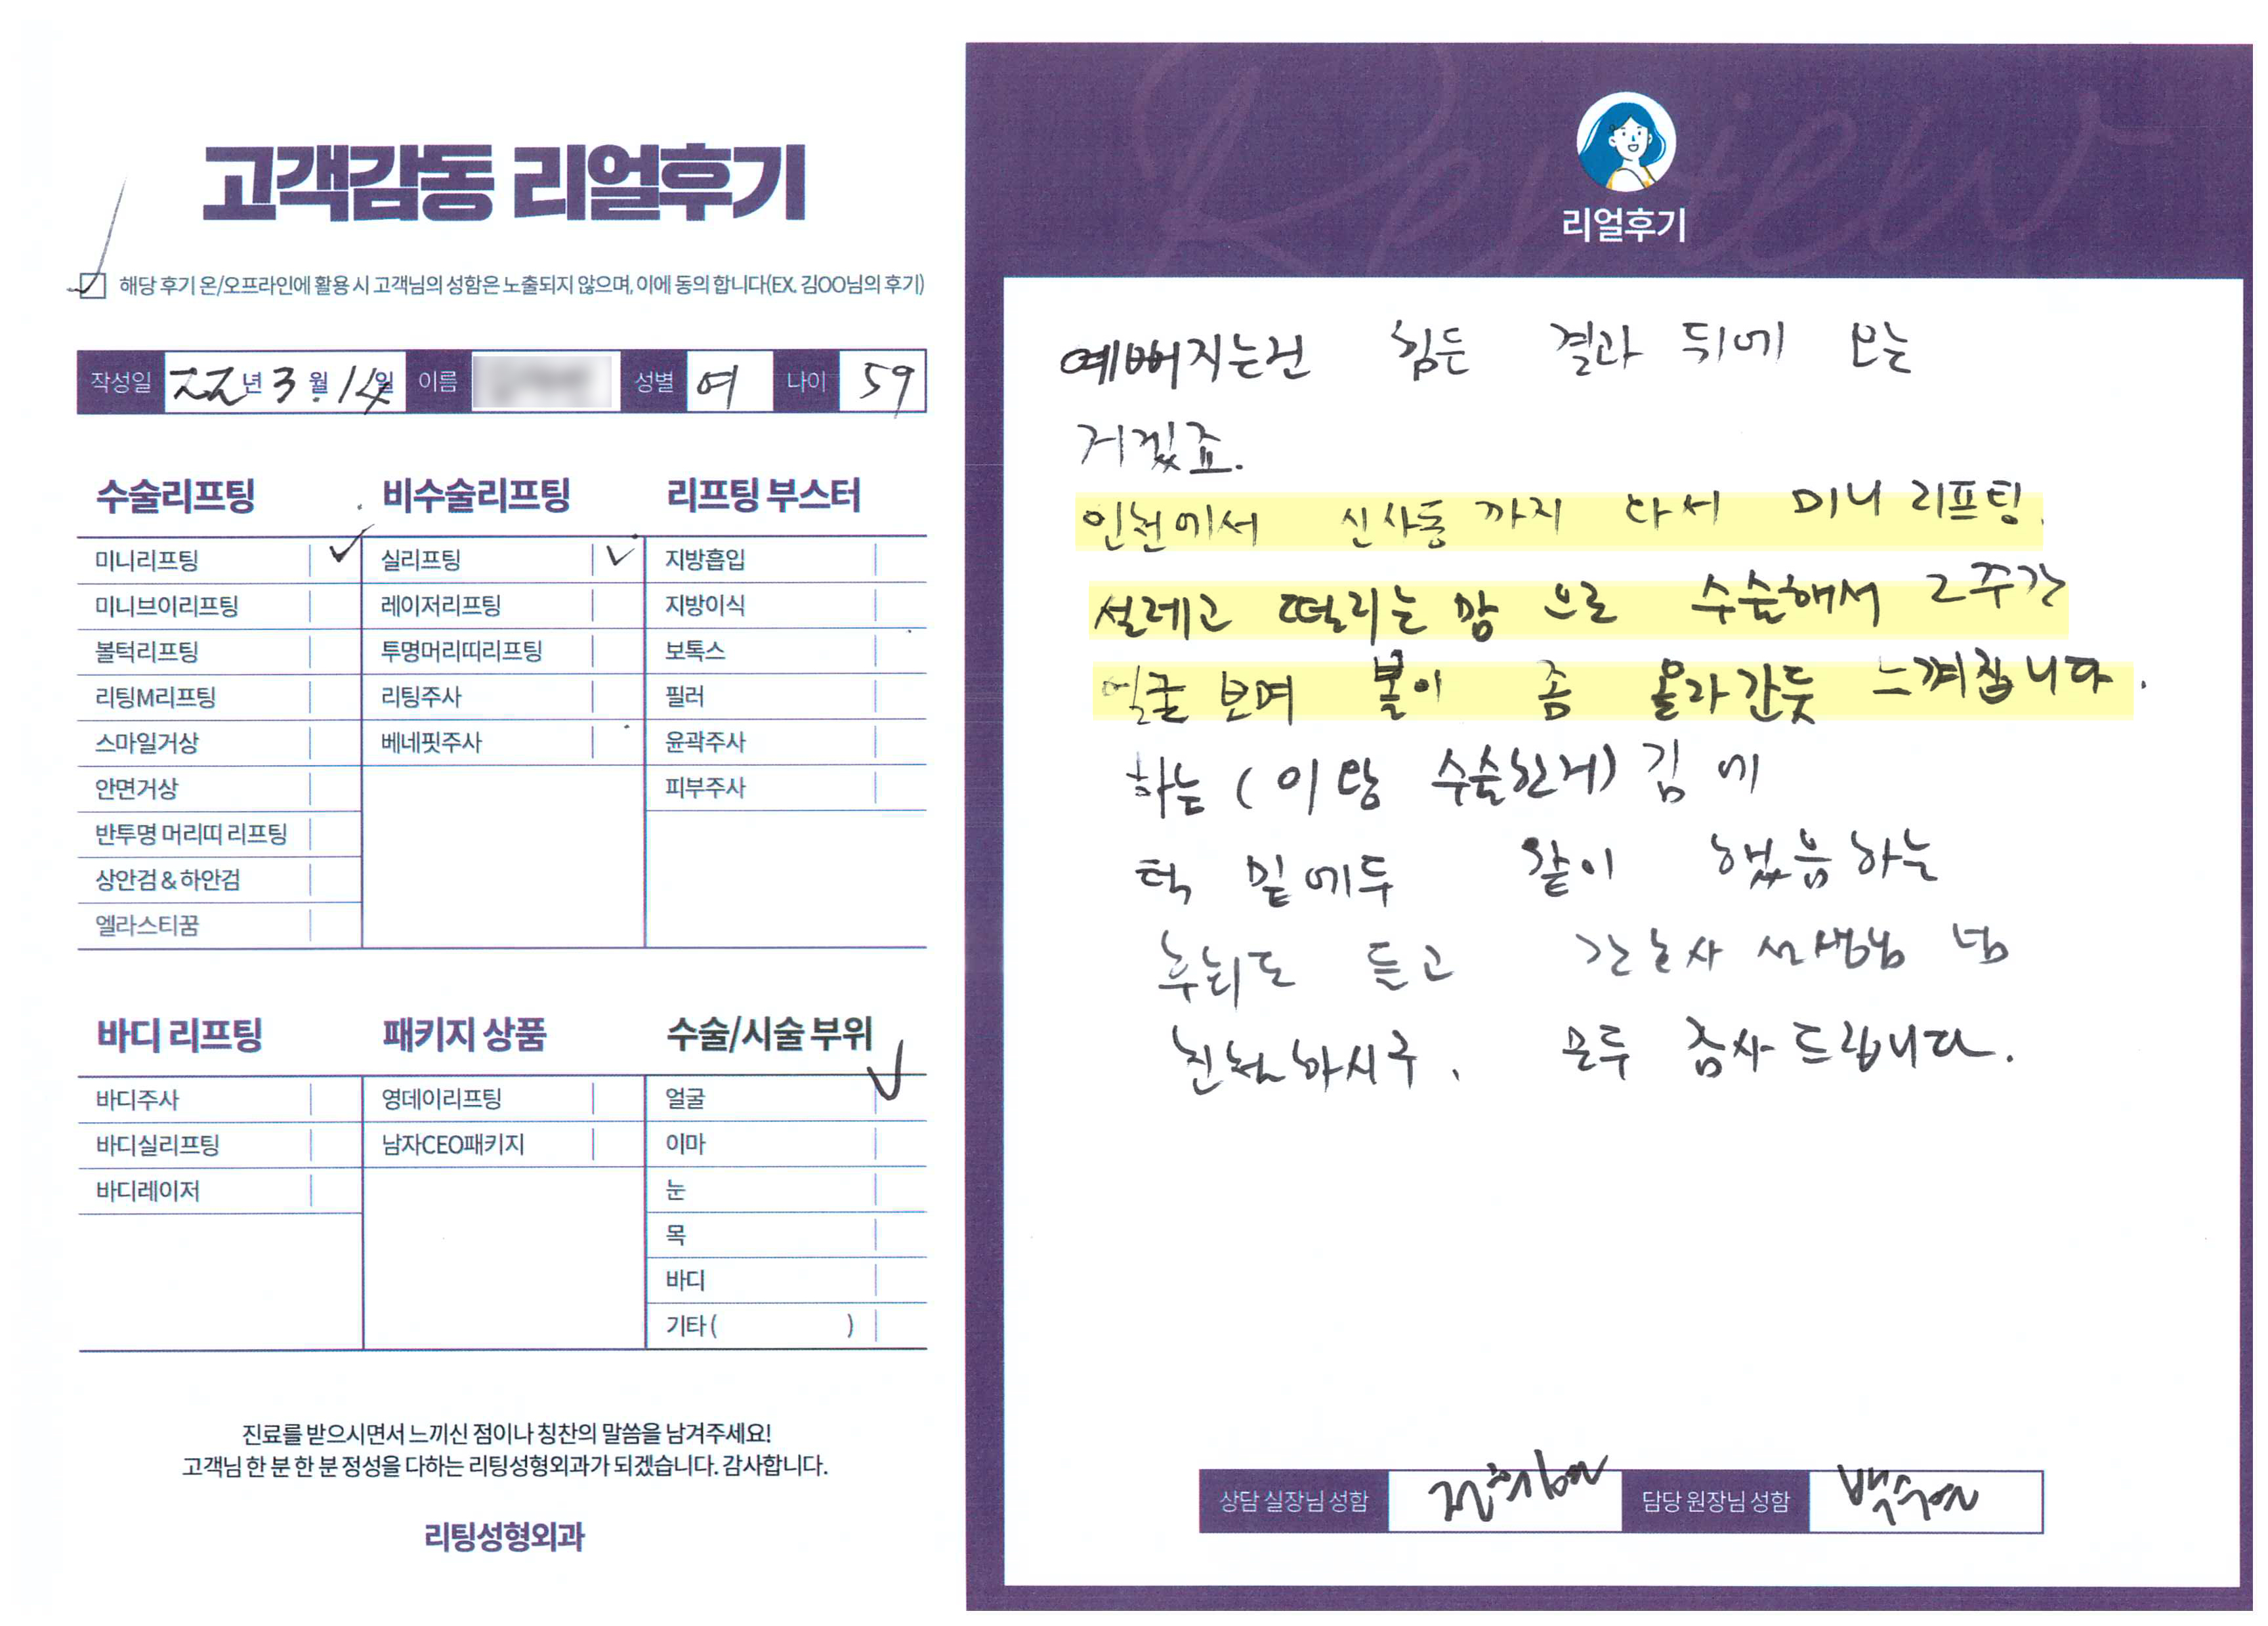 고객감동 리얼후기
해당 후기 온/오프라인에 활용 시 고객님의 성함은 노출되지 않으며, 이에 동의 합니다(EX. 김OO님의 후기)
작성일 22년 3월 14일 이름 성별 여 나이 59
수술리프팅
미니리프팅
미니브이리프팅
볼턱리프팅
리팅M리프팅
스마일거상
안면거상
반투명 머리띠 리프팅
상안검 & 하안검
엘라스티꿈
비수술리프팅
실리프팅
레이저리프팅
투명머리띠리프팅
리팅주사
베네핏주사
리프팅 부스터
지방흡입
지방이식
보톡스
필러
윤곽주사
피부주사
바디 리프팅
바디주사
바디실리프팅
바디레이저
패키지 상품
영데이리프팅
남자CEO패키지
수술/시술 부위
얼굴
이마
눈
목
바디
기타 ( )
진료를 받으시면서 느끼신 점이나 칭찬의 말씀을 남겨주세요!
고객님 한 분 한 분 정성을 다하는 리팅성형외과가 되겠습니다. 감사합니다.
리팅성형외과
Review
리얼후기
예뻐지는건 힘든 결과 뒤에 오는
거겠죠.
인천에서 신사동 까지 와서 미니 리프팅.
설레고 떨리는 맘 으로 수술해서 2주간
얼굴 보며 볼이 좀 올라간듯 느껴집니다.
하는 (이왕 수술한거) 김 에
턱 밑에두 같이 했음 하는
후회도 들고 간호사 선생님 넘
친절하시구. 모두 감사 드립니다.
상담 실장님 성함 담당 원장님 성함